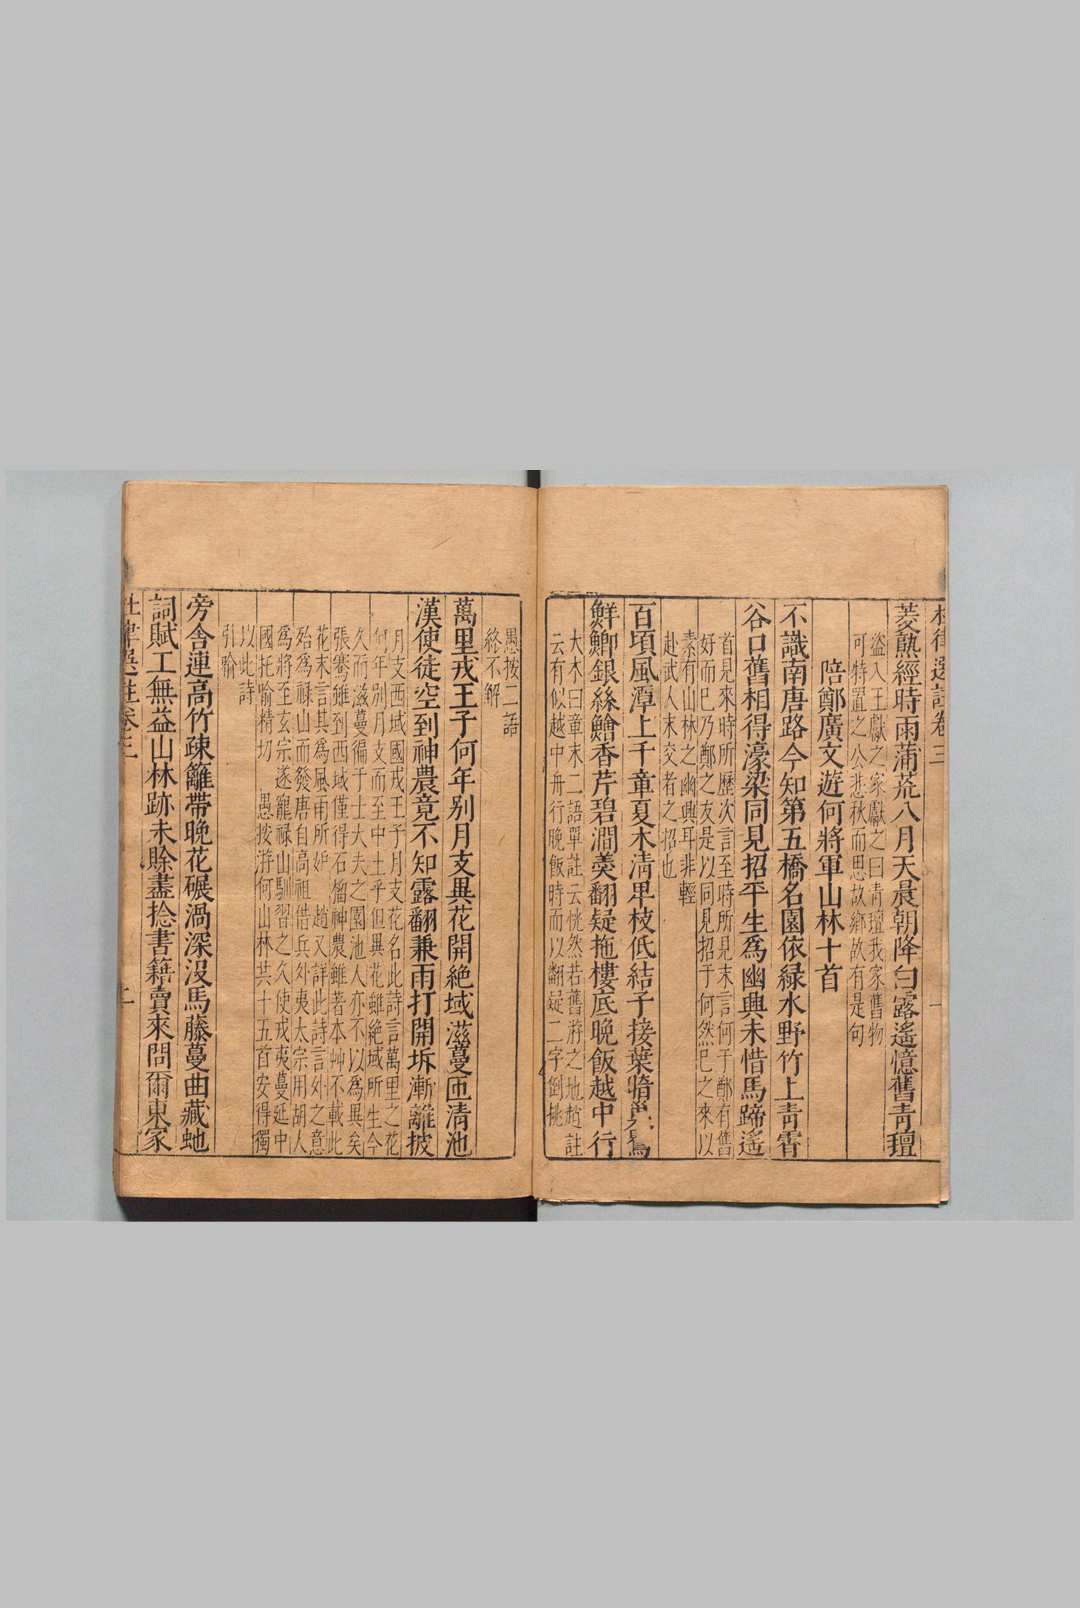 杜律選註卷三
一
菱熟經時雨蒲荒八月天晨朝降白露遙憶舊青氊
盜入王獻之家獻之曰青氊我家舊物
可特置之公悲秋而思故鄉故有是句
陪鄭廣文遊何將軍山林十首
不識南唐路今知第五橋名園依綠水野竹上青霄
谷口舊相得濠梁同見招平生為幽興未惜馬蹄遙
首見來時所歷次言至時所見末言何于鄭有舊
好而已乃鄭之友是以同見招于何然已之來以
素有山林之幽興耳非輕
赴武人末交者之招也
百頃風潭上千章夏木清卑枝低結子接葉暗巢鶯
鮮鯽銀絲鱠香芹碧澗羹翻疑拖樓底晚飯越中行
大木曰章末二語單註云恍然若舊游之地趙註
云有似越中舟行晚飯時而以翻疑二字倒挑
愚按二語
終不解
萬里戎王子何年別月支異花開絕域滋蔓匝清池
漢使徒空到神農竟不知露翻兼雨打開坼漸離披
月支西域國戎王子月支花名此詩言萬里之花
何年別月支而至中土乎但異花雖絕域所生今
久而滋蔓徧于士大夫之園池人亦不以為異矣
張騫雖到西域僅得石榴神農雖著本艸不載此
花末言其為風雨所妒 趙又詳此詩言外之意
殆為祿山而發唐自高祖借兵外夷太宗用胡人
為將至玄宗遂寵祿山馴習之久使戎夷蔓延中
國托喻精切 愚按游何山林共十五首安得獨
以此詩
引喻
旁舍連高竹疎籬帶晚花碾渦深沒馬藤蔓曲藏蛇
詞賦工無益山林跡未賒盡捻書籍賣來問爾東家
杜律選註卷三
二